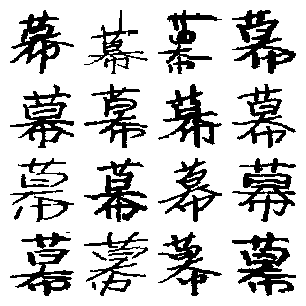 幕幕幕幕
幕幕幕幕
幕幕幕幕
幕幕幕幕